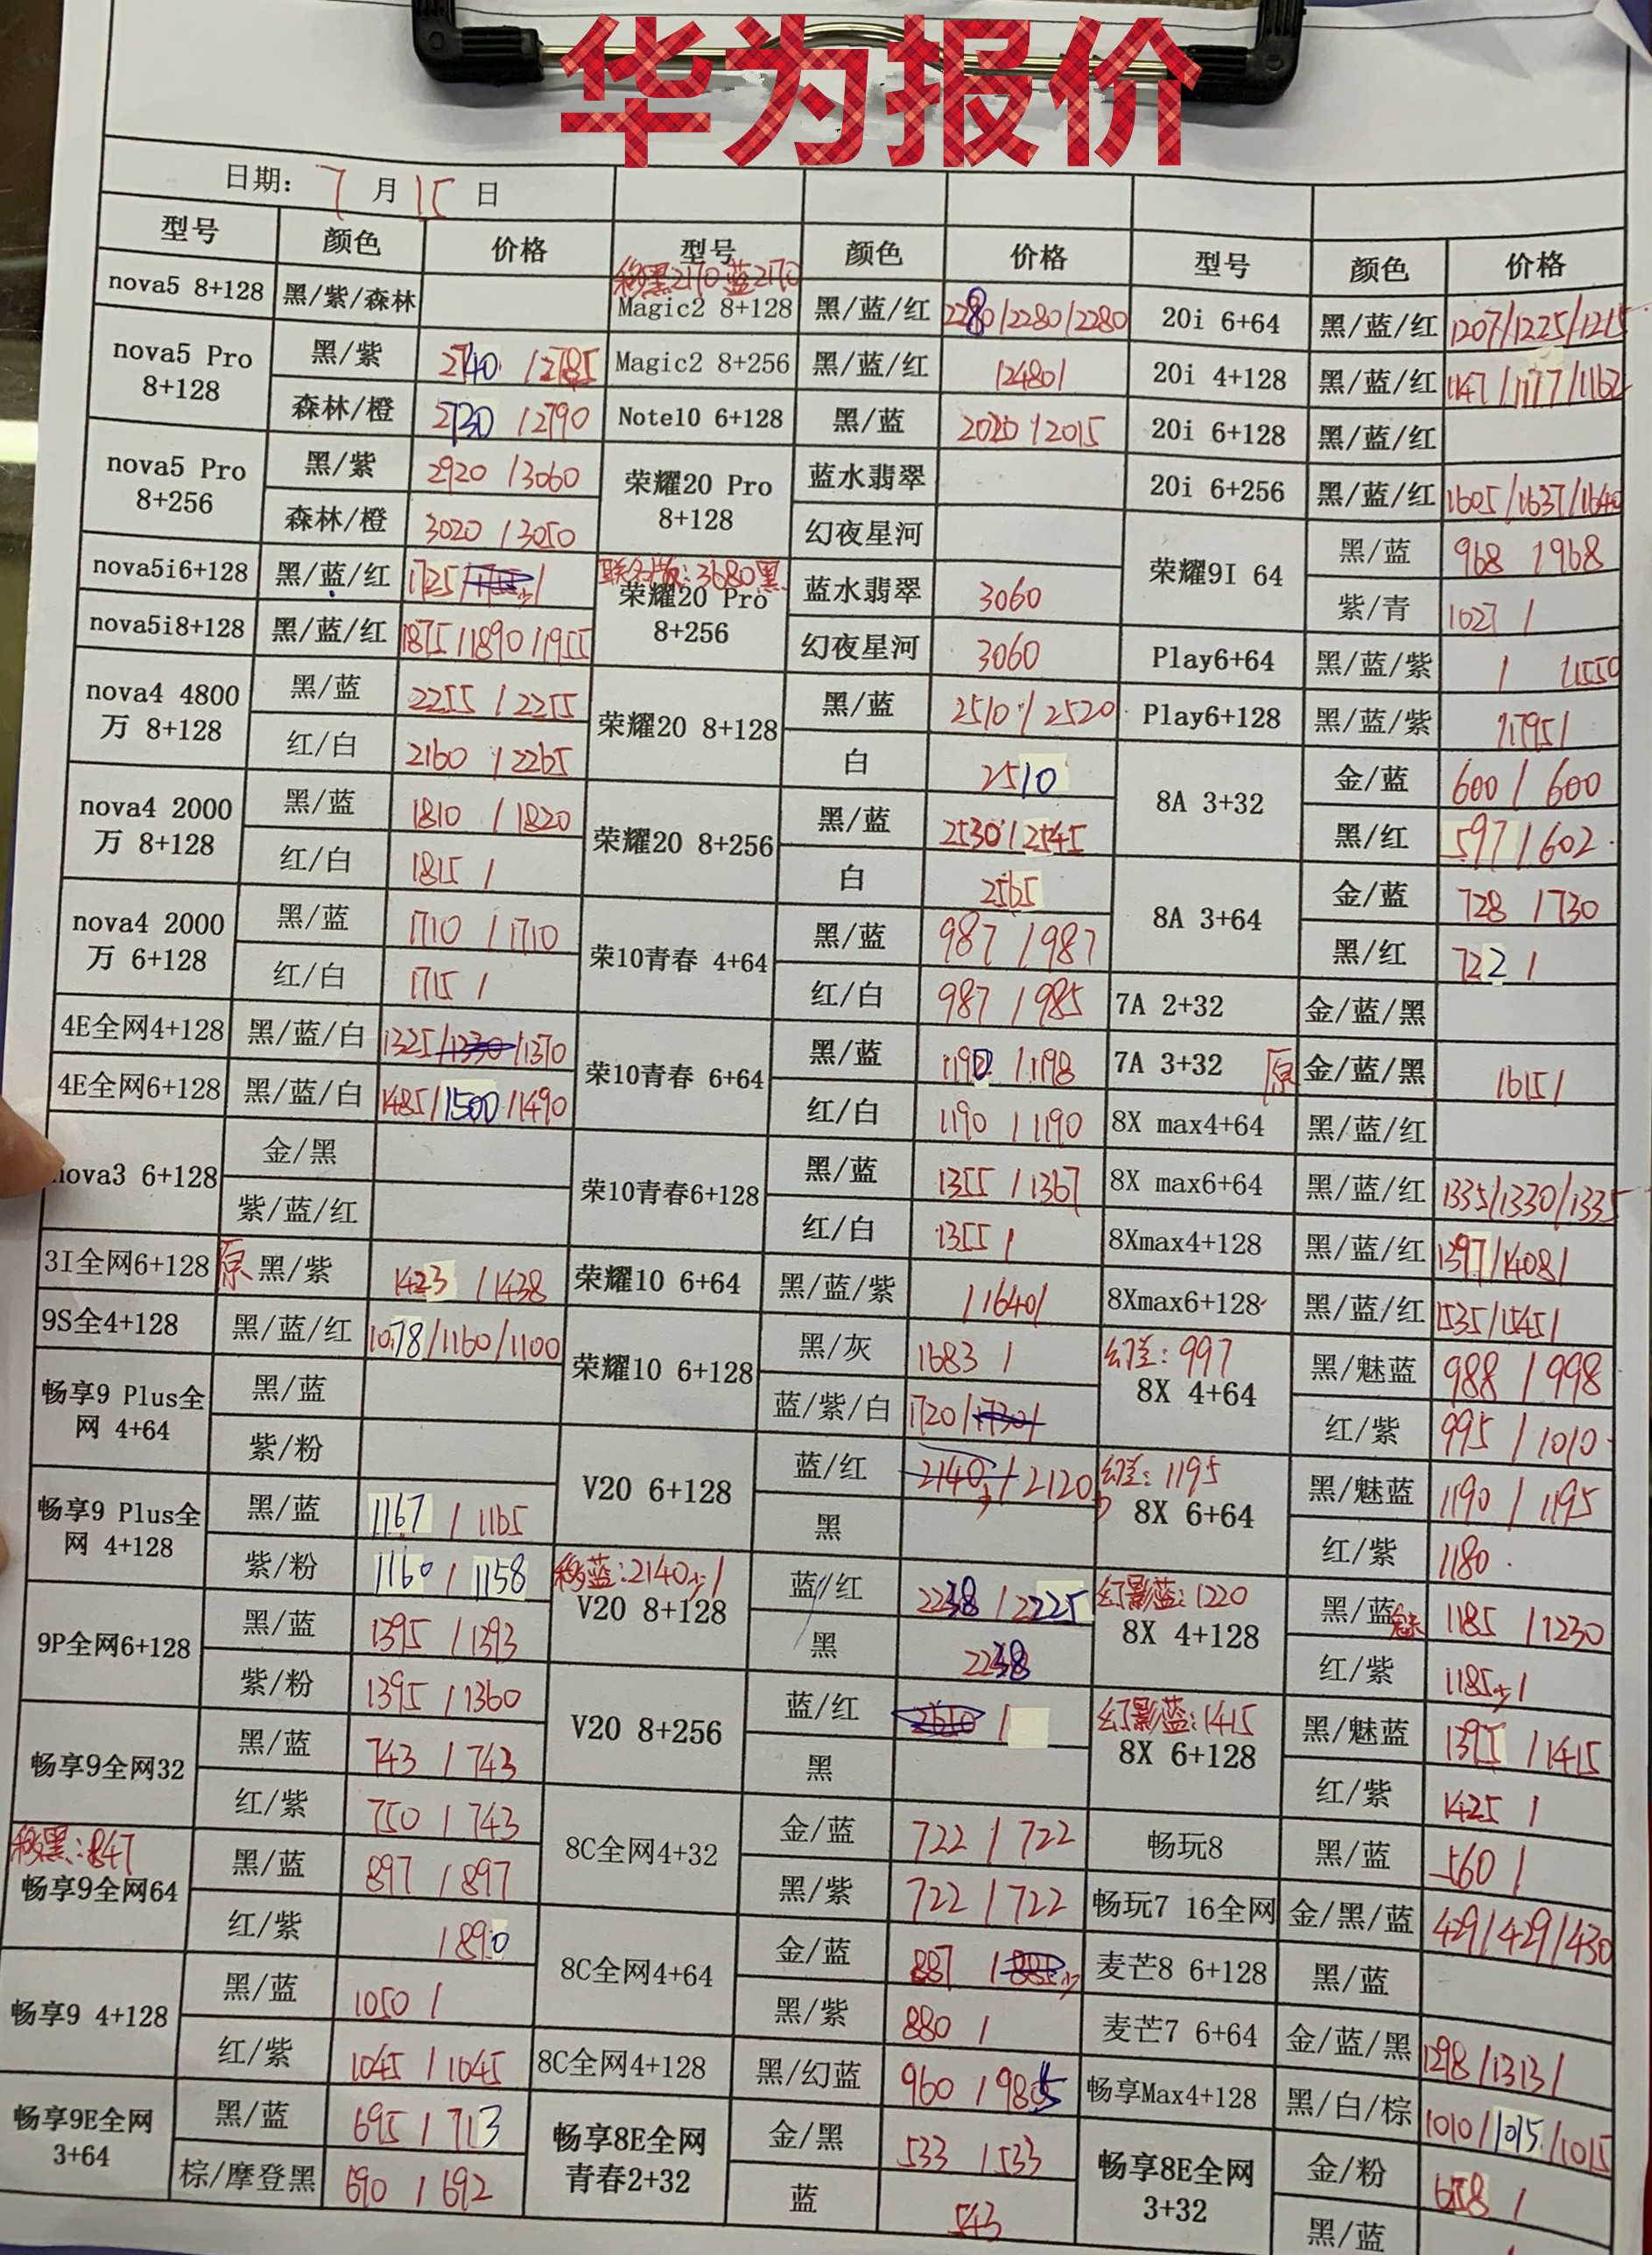 华为报价
日期: 7 月 15 日
型号 颜色 价格 型号 颜色 价格 型号 颜色 价格
nova5 8+128 黑/紫/森林
nova5 Pro 8+128 黑/紫 2740 /2785
森林/橙 2730 /2790
nova5 Pro 8+256 黑/紫 2920 /3060
森林/橙 3020 /3050
nova5i6+128 黑/蓝/红 1725/
nova5i8+128 黑/蓝/红 1875/1890/1955
nova4 4800万 8+128 黑/蓝 2255 /2255
红/白 2160 /2265
nova4 2000万 8+128 黑/蓝 1810 /1820
红/白 1815 /
nova4 2000万 6+128 黑/蓝 1710 /1710
红/白 1715 /
4E全网4+128 黑/蓝/白 1325/1330/1370
4E全网6+128 黑/蓝/白 1485/1500/1490
nova3 6+128 金/黑
紫/蓝/红
3I全网6+128 原 黑/紫 1423 /1438
9S全4+128 黑/蓝/红 1078/1160/1100
畅享9 Plus全网 4+64 黑/蓝
紫/粉
畅享9 Plus全网 4+128 黑/蓝 1167 /1165
紫/粉 1160 /1158
9P全网6+128 黑/蓝 1395 /1393
紫/粉 1395 /1360
畅享9全网32 黑/蓝 743 /743
红/紫 750 /743
移黑:847
畅享9全网64 黑/蓝 897 /897
红/紫 /890
畅享9 4+128 黑/蓝 1050 /
红/紫 1045 /1045
畅享9E全网 3+64 黑/蓝 695 /713
棕/摩登黑 690 /692
移黑2170 蓝2170
Magic2 8+128 黑/蓝/红 2280/2280/2280
Magic2 8+256 黑/蓝/红 /2480/
Note10 6+128 黑/蓝 2020 /2015
荣耀20 Pro 8+128 蓝水翡翠
幻夜星河
联名版:3680黑
荣耀20 Pro 8+256 蓝水翡翠 3060
幻夜星河 3060
荣耀20 8+128 黑/蓝 2510 /2520
白 2510
荣耀20 8+256 黑/蓝 2530 /2545
白 2565
荣10青春 4+64 黑/蓝 987 /987
红/白 987 /985
荣10青春 6+64 黑/蓝 1190 /1198
红/白 1190 /1190
荣10青春6+128 黑/蓝 1355 /1367
红/白 1355 /
荣耀10 6+64 黑/蓝/紫 /1640/
荣耀10 6+128 黑/灰 1683 /
蓝/紫/白 1720/1730/
V20 6+128 蓝/红 2140少/2120
黑
移蓝:2140少/
V20 8+128 蓝/红 2238 /2225
黑 2238
V20 8+256 蓝/红 /
黑
8C全网4+32 金/蓝 722 /722
黑/紫 722 /722
8C全网4+64 金/蓝 887 /885少
黑/紫 880 /
8C全网4+128 黑/幻蓝 960 /985
畅享8E全网青春2+32 金/黑 533 /533
蓝 543
20i 6+64 黑/蓝/红 1207/1225/1215
20i 4+128 黑/蓝/红 1147/1177/1162
20i 6+128 黑/蓝/红
20i 6+256 黑/蓝/红 1605/1637/1640
荣耀9I 64 黑/蓝 968 /968
紫/青 1027 /
Play6+64 黑/蓝/紫 / /1550
Play6+128 黑/蓝/紫 /1795/
8A 3+32 金/蓝 600 /600
黑/红 597 /602
8A 3+64 金/蓝 728 /730
黑/红 722 /
7A 2+32 金/蓝/黑
7A 3+32 原 金/蓝/黑 /615/
8X max4+64 黑/蓝/红
8X max6+64 黑/蓝/红 1335/1330/1335
8Xmax4+128 黑/蓝/红 1397/1408/
8Xmax6+128 黑/蓝/红 1535/1545/
997
8X 4+64 黑/魅蓝 988 /998
红/紫 995 /1010
1195
8X 6+64 黑/魅蓝 1190 /1195
红/紫 1180
幻影蓝:1220
8X 4+128 黑/蓝魅 1185 /1230
红/紫 1185少/
幻影蓝:1415
8X 6+128 黑/魅蓝 1395 /1415
红/紫 1425 /
畅玩8 黑/蓝 560 /
畅玩7 16全网 金/黑/蓝 429/429/430
麦芒8 6+128 黑/蓝
麦芒7 6+64 金/蓝/黑 1298/1313/
畅享Max4+128 黑/白/棕 1010/1015/1015
畅享8E全网 3+32 金/粉 658 /
黑/蓝